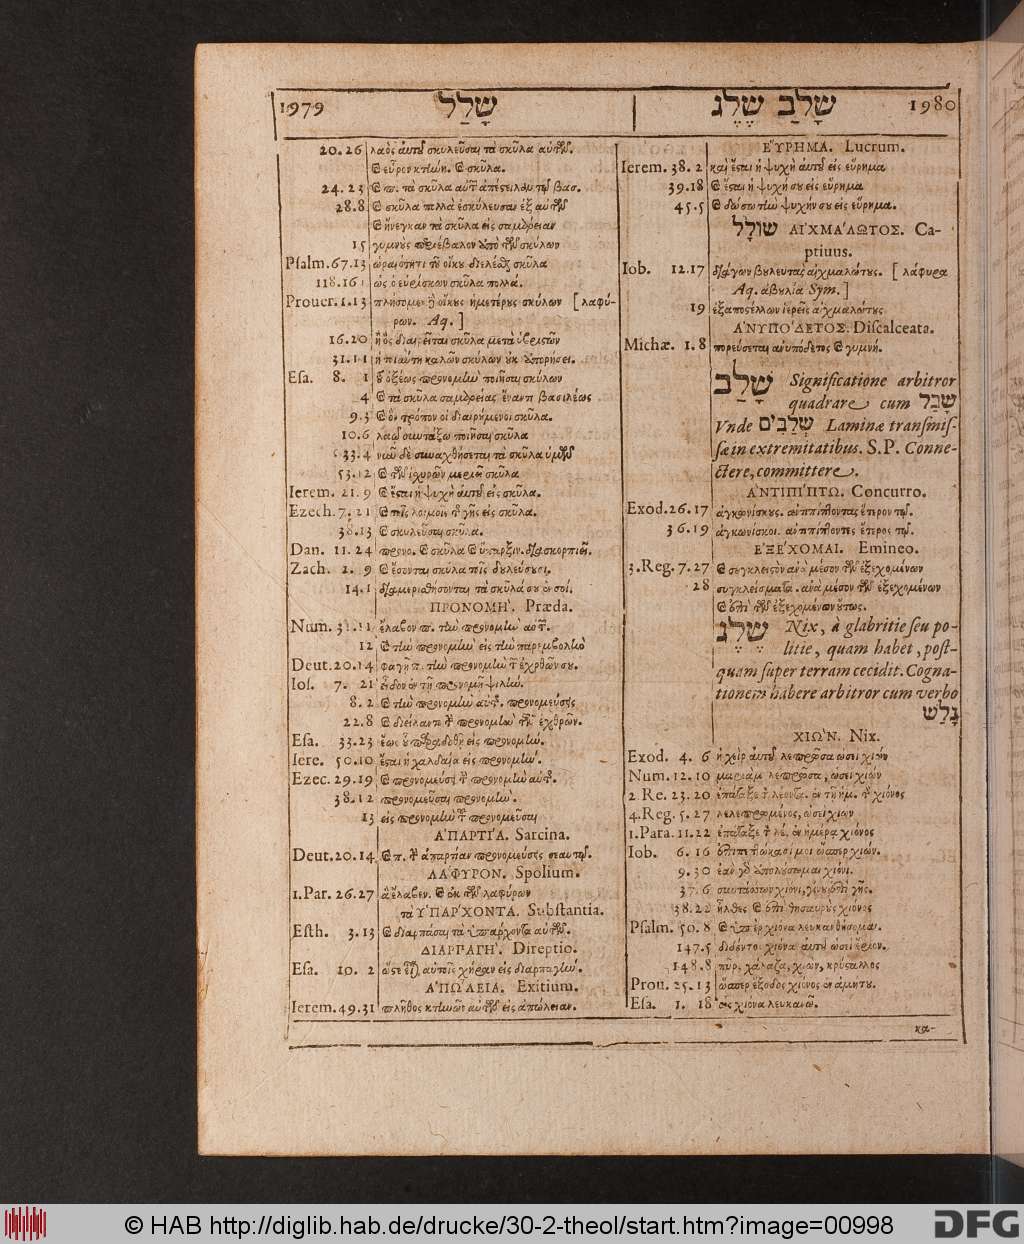 1979 שָׁלַל
20.26 λαὸς αὐτοῦ σκυλεῦσαι τὰ σκῦλα αὐτῶν.
καὶ εὗρον κτήνη. καὶ σκῦλα.
24.23 καὶ π. τὰ σκῦλα αὐτῶν ἀπέστειλαν τῷ βασ.
28.8 καὶ σκῦλα πολλὰ ἐσκύλευσαν ἐξ αὐτῶν
καὶ ἤνεγκαν τὰ σκῦλα εἰς σαμάρειαν
15 γυμνοὺς περιέβαλον ἀπὸ τῶν σκύλων
Psalm. 67.13 ὡραιότητι τοῦ οἴκου διελέσθαι σκῦλα
118.161 ὡς ὁ εὑρίσκων σκῦλα πολλά.
Prouer. 1.13 πλήσωμεν οἴκους ἡμετέρους σκύλων [λαφύ-
ρων. Aq.]
16.20 ἢ ὃς διαιρεῖται σκῦλα μετὰ ὑβριστῶν
31.11 ἡ τοιαύτη καλῶν σκύλων οὐκ ἀπορήσει.
Esa. 8. 1 τοῦ ὀξέως προνομὴν ποιῆσαι σκύλων
4 καὶ τὰ σκῦλα σαμαρείας ἔναντι βασιλέως
9.3 καὶ ὃν τρόπον οἱ διαιρήμενοι σκῦλα.
10.6 λαῷ συντάξω ποιῆσαι σκῦλα
33.4 νῦν δὲ συναχθήσεται τὰ σκῦλα ὑμῶν
53.12 καὶ τῶν ἰσχυρῶν μεριεῖ σκῦλα
Ierem. 21.9 καὶ ἔσται ἡ ψυχὴ αὐτοῦ εἰς σκῦλα.
Ezech. 7.21 καὶ τοῖς λοιμοῖς τῆς γῆς εἰς σκῦλα.
38.13 καὶ σκυλεῦσαι σκῦλα.
Dan. 11.24 προνο. καὶ σκῦλα καὶ ὕπαρξιν. διασκορπιεῖ.
Zach. 2. 9 καὶ ἔσονται σκῦλα τοῖς δουλεύουσι.
14.1 διαμερισθήσονται τὰ σκῦλά σου ἐν σοί.
ΠΡΟΝΟΜΗ'. Præda.
Num. 31.11 ἔλαβον π. τὴν προνομὴν αὐτῶν.
12 καὶ τὴν προνομὴν εἰς τὴν παρεμβολὴν
Deut. 20.14 φάγῃ π. τὴν προνομὴν τῶν ἐχθρῶν σου.
Ios. 7. 21 εἶδον ἐν τῇ προνομῇ ψιλὴν.
8.2 καὶ τὴν προνομὴν αὐτῶν. προνομεύσεις
22.8 καὶ διείλαντο τὴν προνομὴν τῶν ἐχθρῶν.
Esa. 33.23 ἕως οὗ παραδοθῇ εἰς προνομὴν.
Iere. 50.10 ἔσται ἡ χαλδαία εἰς προνομὴν.
Ezec. 29.19 καὶ προνομεύσει τὴν προνομὴν αὐτῆς.
38.12 προνομεῦσαι προνομὴν.
13 εἰς προνομὴν τοῦ προνομεῦσαι
Α'ΠΑΡΤΙ'Α. Sarcina.
Deut. 20.14 καὶ π. τὴν ἀπαρτίαν προνομεύσεις σεαυτῷ.
ΛΑ'ΦΥΡΟΝ. Spolium.
1.Par. 26.27 ἃ ἔλαβεν. καὶ ἐκ τῶν λαφύρων
τὰ Υ'ΠΑΡ'ΧΟΝΤΑ. Substantia.
Esth. 3.13 καὶ διαρπάσαι τὰ ὑπάρχοντα αὐτῶν.
ΔΙΑΡΠΑΓΗ'. Direptio.
Esa. 10. 2 ὥστε εἶναι αὐτοῖς χήραν εἰς διαρπαγὴν.
Α'ΠΩ'ΛΕΙΑ. Exitium.
Ierem. 49.31 πλῆθος κτηνῶν αὐτῶν εἰς ἀπώλειαν.
שָׁלַב שֶׁלֶג 1980
ΕΥ'ΡΗΜΑ. Lucrum.
Ierem. 38. 2 καὶ ἔσται ἡ ψυχὴ αὐτοῦ εἰς εὕρημα
39.18 καὶ ἔσται ἡ ψυχή σου εἰς εὕρημα
45.5 καὶ δώσω τὴν ψυχήν σου εἰς εὕρημα.
שׁוֹלָל ΑΙ'ΧΜΑ'ΛΩΤΟΣ. Ca-
ptiuus.
Iob. 12.17 διάγων βουλευτὰς αἰχμαλώτους. [λάφυρα
Aq. ἀβουλία Sym.]
19 ἐξαποστέλλων ἱερεῖς αἰχμαλώτους
Α'ΝΥΠΟ'ΔΕΤΟΣ. Discalceata.
Michæ. 1.8 πορεύσεται ἀνυπόδετος καὶ γυμνή.
שָׁלַב Significatione arbitror
quadrare cum שָׁבַל
Vnde שְׁלַבִּים Laminæ transmis-
sæ in extremitatibus. S.P. Conne-
ctere, committere.
Α'ΝΤΙΠΙ'ΠΤΩ. Concurro.
Exod. 26.17 ἀγκωνίσκους. ἀντιπίπτοντας ἕτερον τῷ.
36.19 ἀγκωνίσκοι. ἀντιπίπτοντες ἕτερος τῷ.
Ε'ΞΕ'ΧΟΜΑΙ. Emineo.
3.Reg. 7.27 καὶ συγκλειστὸν ἀνὰ μέσον τῶν ἐξεχομένων
28 συγκλείσματα. ἀνὰ μέσον τῶν ἐξεχομένων
καὶ ἐπὶ τῶν ἐξεχομένων οὕτως.
שֶׁלֶג Nix, à glabritie seu po-
litie, quam habet, post-
quam super terram cecidit. Cogna-
tionem habere arbitror cum verbo
גָּלַשׁ
ΧΙΩ'Ν. Nix.
Exod. 4. 6 ἡ χεὶρ αὐτοῦ λεπρῶσα ὡσεὶ χιών
Num. 12.10 μαριὰμ λεπρῶσα, ὡσεὶ χιών
2.Re. 23.20 ἐπάταξε τὸν λέοντα. ἐν τῇ ἡμ. τῆς χιόνος
4.Reg. 5.27 λελεπρωμένος, ὡσεὶ χιών
1.Para. 11.22 ἐπάταξε τὸν λέ. ἐν ἡμέρᾳ χιόνος
Iob. 6.16 ἐπιπεπτώκασί μοι ὥσπερ χιών.
9.30 ἐὰν γὰρ ἀπολούσωμαι χιόνι.
37.6 συντάσσων χιόνι, γίνου ἐπὶ γῆς.
38.22 ἦλθες καὶ ἐπὶ θησαυροὺς χιόνος
Psalm. 50.8 καὶ ὑπὲρ χιόνα λευκανθήσομαι.
147.5 διδόντος χιόνα αὐτοῦ ὡσεὶ ἔριον.
148.8 πῦρ, χάλαζα, χιών, κρύσταλλος
Prou. 25.13 ὥσπερ ἔξοδος χιόνος ἐν ἀμήτῳ.
Esa. 1. 18 ὡς χιόνα λευκανῶ.
κα-
© HAB http://diglib.hab.de/drucke/30-2-theol/start.htm?image=00998
DFG